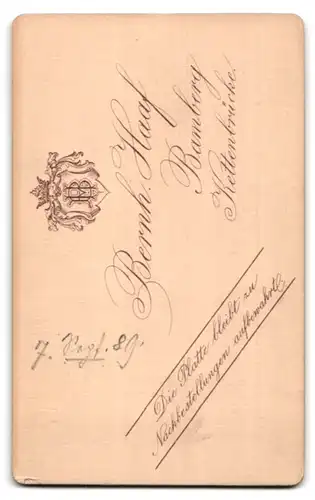 Bernh. Haaf
Bamberg
Kettenbrücke.
Die Platte bleibt zu
Nachbestellungen aufbewahrt.
7. Sept. 89.